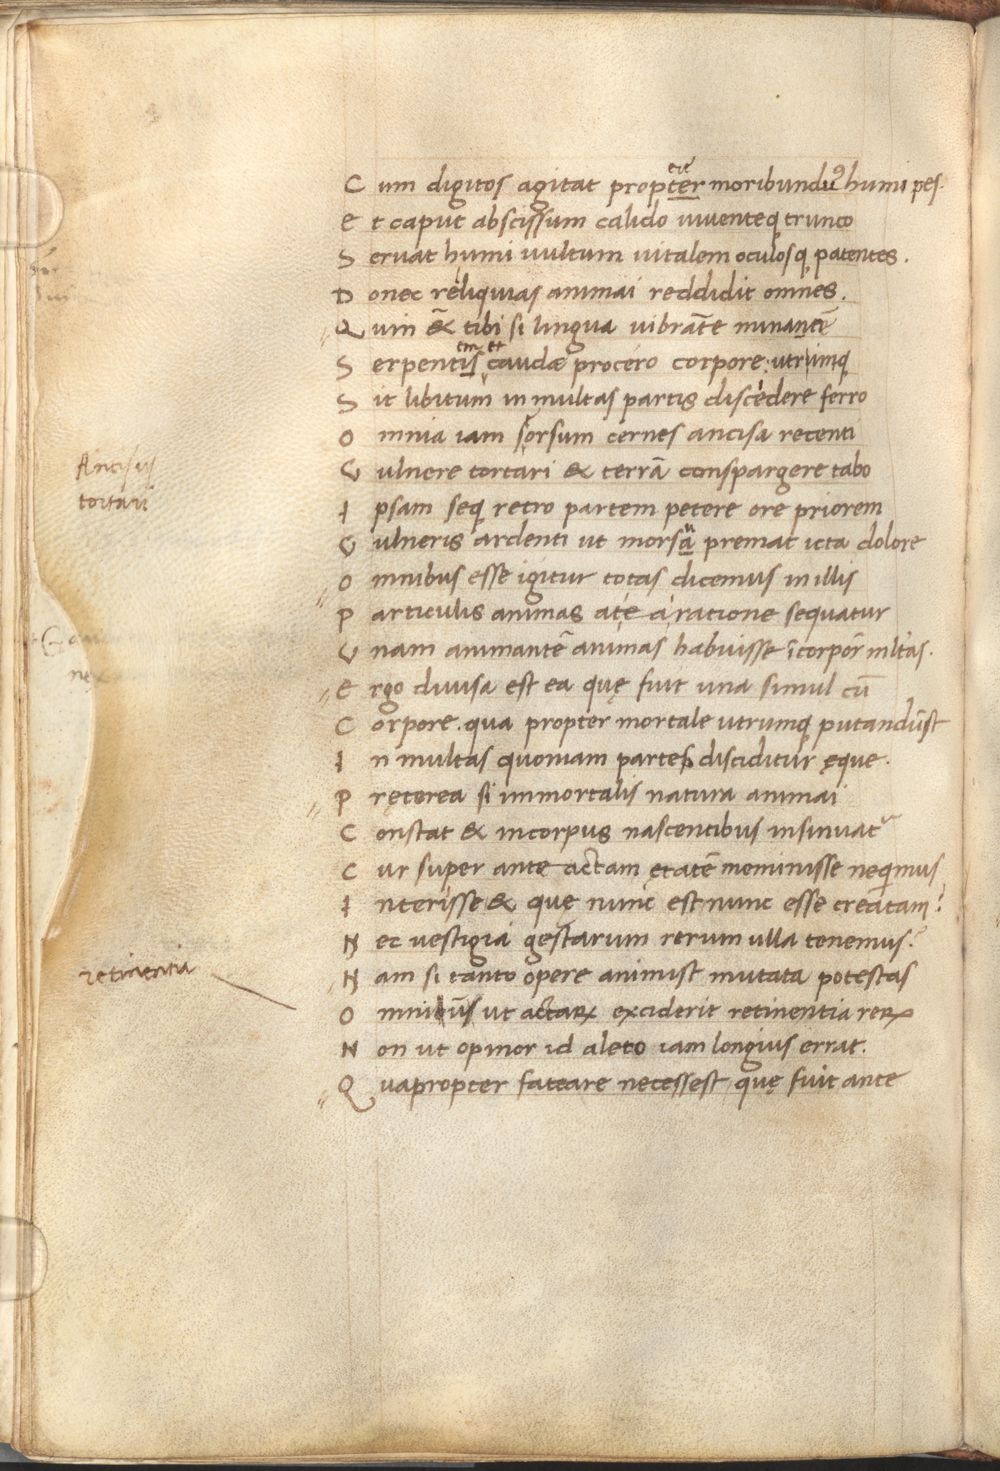 Cum digitos agitat propter moribundꝰ humi pes.
cie
Et caput abscissum calido viventeq trunco
Servat humi vultum vitalem oculosq patentes.
Donec reliquias animai reddidit omnes.
Quin & tibi si lingua vibrāte minantē
em et
Serpentis caudæ procero corpore utrimq
Sit libitum in multas partis discedere ferro
Omnia iam sorsum cernes ancisa recenti
Vulnere tortari & terrā conspargere tabo
Ancisus
tortari
Ipsam seq retro partem petere ore priorem
Vulneris ardenti ut morsa premat icta dolore
u
Omnibus esse igitur totas dicemus in illis
Particulis animas atę a ratione sequatur
Vnam animantē animas habuisse ī corpore mltas.
Ergo divisa est ea quę fuit una simul cū
Corpore. qua propter mortale utrumq putandūst
In multas quoniam partes disciditur ęque.
Pręterea si immortalis natura animai
Constat & in corpus nascentibus insinuatr
Cur super ante actam ętatē meminisse nequimus
Interisse & quę nunc est nunc esse creatam?
Nec vestigia gestarum rerum ulla tenemus?
Nam si tanto opere animist mutata potestas
retinentia
Omnibus ut actaꝝ exciderit retinentia rerꝝ
Non ut opinor id aleto iam longius errat.
Quapropter fateare necessest quę fuit ante